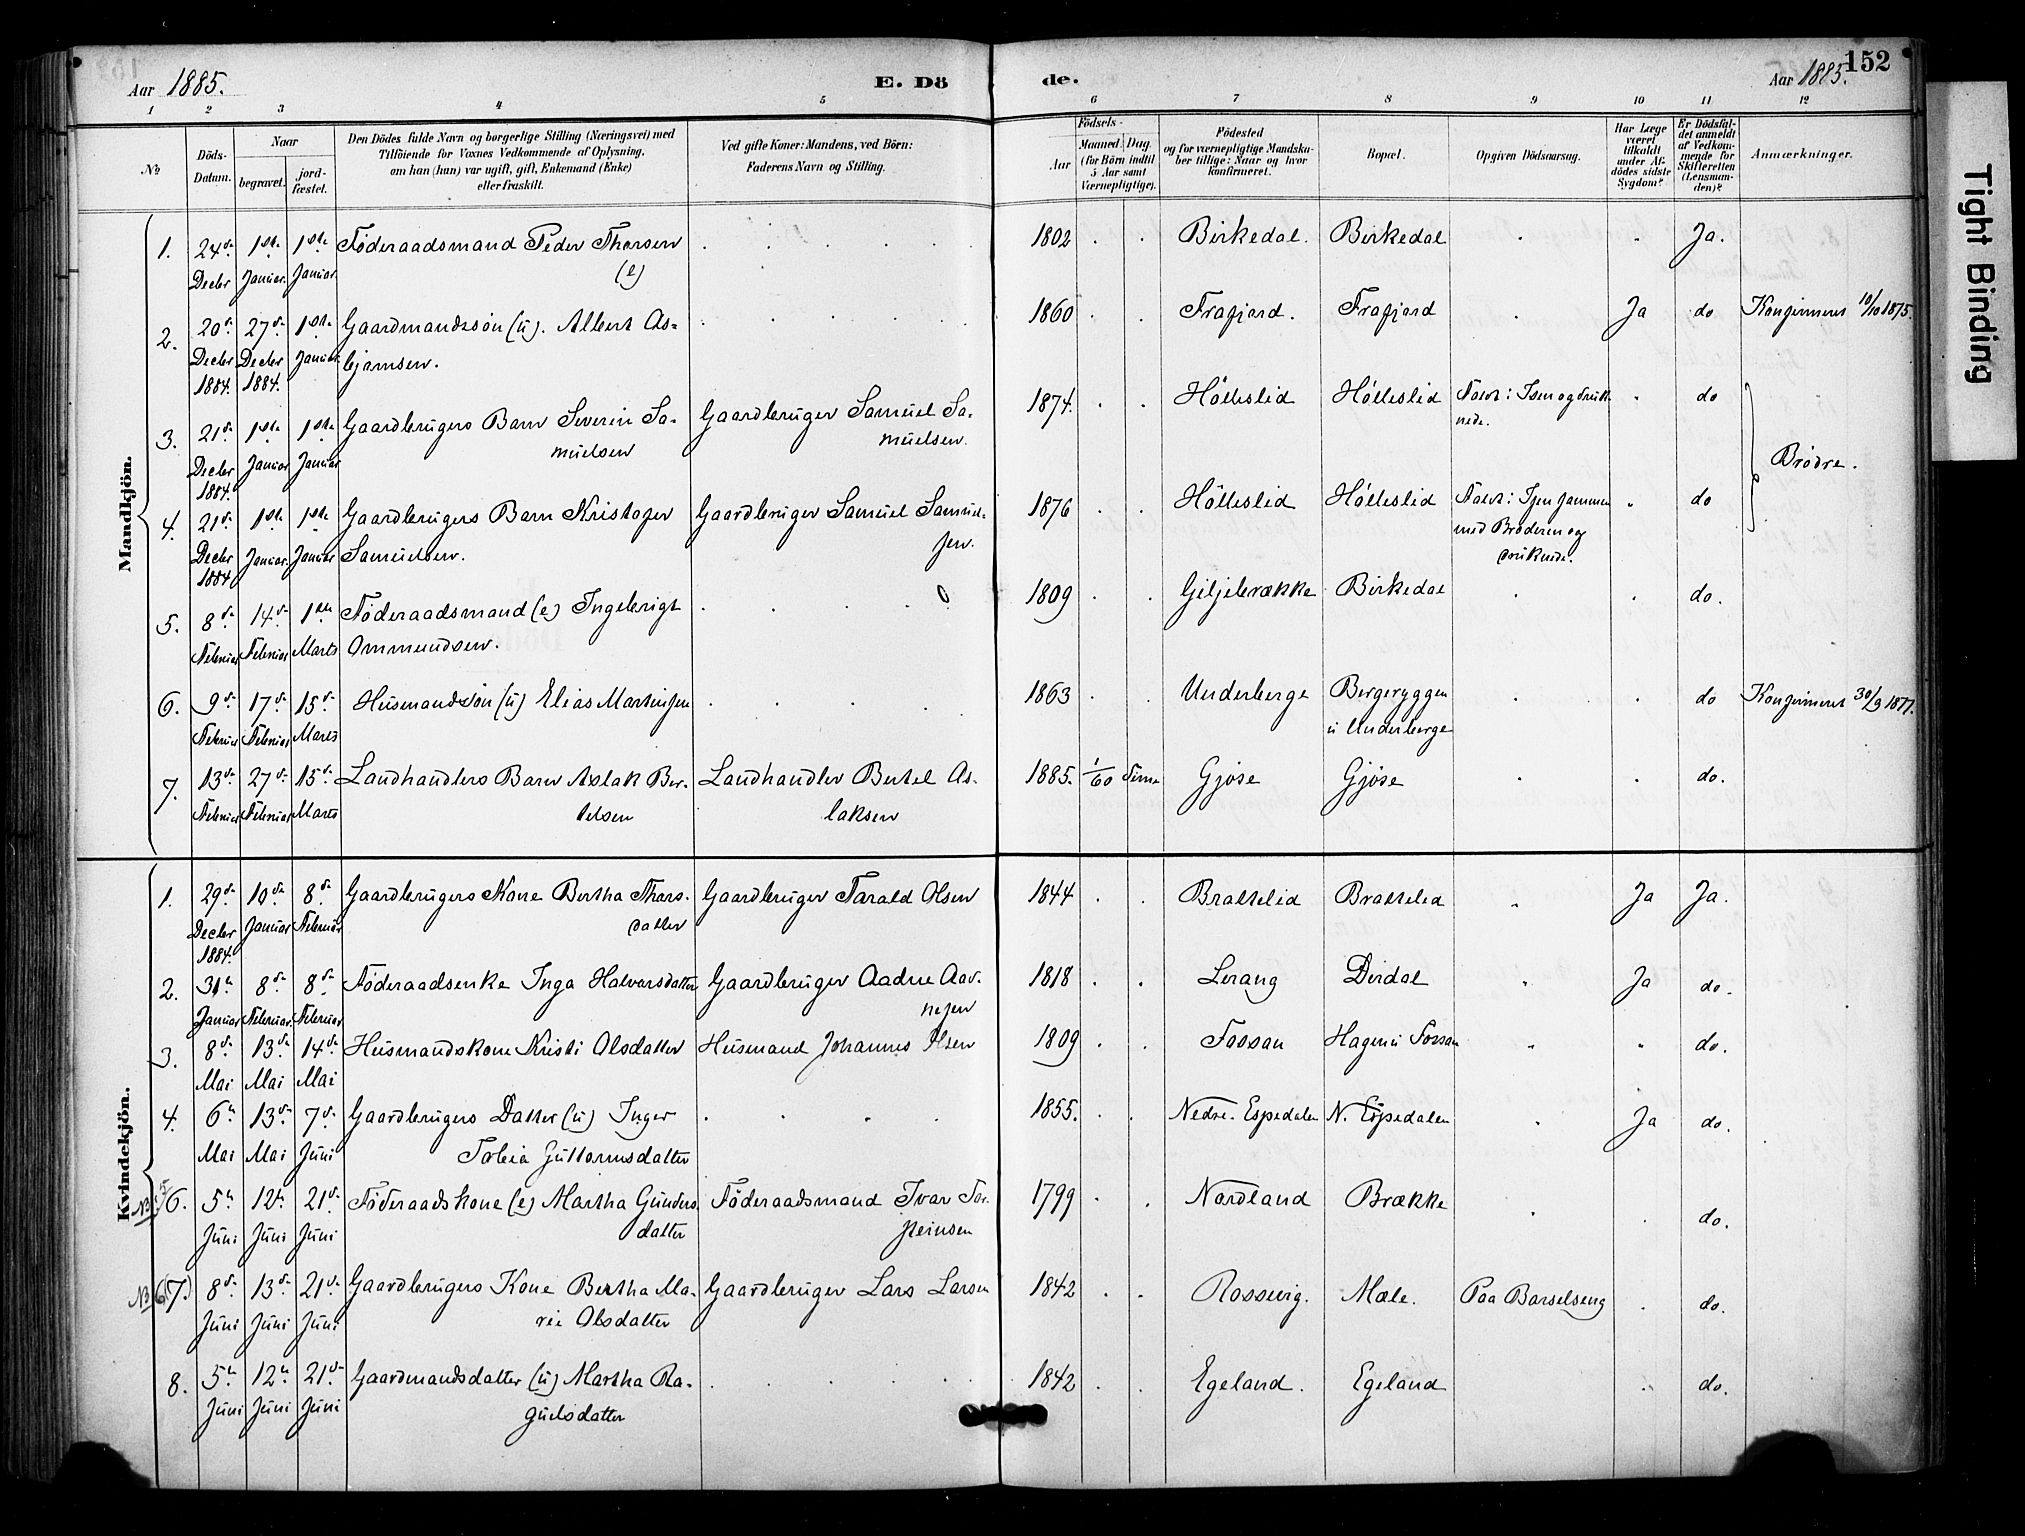 152
Aar 1885. E. Dö de. Aar 1885.
1 2 3 4 5 6 7 8 9 10 11 12
No
Döds-Datum.
Naar
begravet.
jord-fæstet.
Den Dödes fulde Navn og borgerlige Stilling (Næringsvei) med
Tilföiende for Voxnes Vedkommende af Oplysning,
om han (hun) var ugift, gift, Enkemand (Enke)
eller fraskilt.
Ved gifte Koner: Mandens, ved Börn:
Faderens Navn og Stilling.
Födsels-
Aar
Maaned. Dag
(for Börn indtil
5 Aar samt
Værnepligtige).
Födested
og for værnepligtige Mandska-
ber tillige: Naar og hvor
konfirmeret.
Bopæl.
Opgiven Dödsaarsag.
Har Læge
været
tilkaldt
under Af-
dödes sidste
Sygdom?
Er Dödsfal-
det anmeldt
af Vedkom-
mende for
Skifteretten
(Lensman-
den)?
Anmærkninger.
Tight Binding
Mandkjön.
1. 24de 1ste 1ste Föderaadsmand Peder Thorsen 1802 Birkedal. Birkedal Ja.
Decbr Januar Januar (e)
2. 20de 27de 1ste Gaardmandssön (u). Albert As- 1860 Frafjord. Frafjord Ja do Konfirmeret 10/10 1875.
Decbr Decbr Januar bjørnsen.
1884. 1884.
3. 21de 1ste 1ste Gaardbrugers Barn Severin Sa- Gaardbruger Samuel Sa- 1874. Hölleslid Hölleslid Faldt i Isen og druk- do
Decbr Januar Januar muelsen muelsen. nede.
1884. Brödre.
4. 21de 1ste 1ste Gaardbrugers Barn Kristofer Gaardbruger Samuel Samuel- 1876 Hölleslid Hölleslid Faldt i Isen sammen do
Decbr Januar Januar Samuelsen. sen. med Broderen og
1884 druknede.
5. 8de 14de 1ste Föderaadsmand (e) Ingebrigt 1809 Giljebrække Birkedal do.
Februar Februar Marts Ommundsen.
6. 9de 17de 15de Husmandssön (u) Elias Martinsen 1863 Underberge Bergeryggen do Konfirmeret 30/9 1877.
Februar Februar Marts u Underberge
7. 13de 27de 15de Landhandlers Barn Aslak Ber- Landhandler Bertel As- 1885. 1/60 Time Gjöse Gjöse do.
Februar Februar Marts telsen laksen
Kvindekjön.
1. 29de 10de 8de Gaardbrugers Kone Bertha Thors- Gaardbruger Tarald Olsen 1844 Brattelid Brattelid Ja Ja.
Decbr Januar Februar datter
1884.
2. 31te 8de 8de Föderaadsenke Inga Halvorsdatter Gaardbruger Aadne Aad- 1818 Lerang Dirdal Ja do.
Januar Februar Februar nesen
3. 8de 13de 14de Husmandskone Kristi Olsdatter Husmand Johannes Olsen 1809 Fossan Hagen u Fossan do.
Mai Mai Mai
4. 6te 13de 7de Gaardbrugers Datter (u) Inger 1855. Nedre Espedalen N. Espedalen Ja do.
Mai Mai Juni Tobia Guttormsdatter
NB 5 6. 5te 12te 21de Föderaadskone (e) Martha Gunders- Föderaadsmand Ivar Tor- 1799 Nordland Brække do.
Juni Juni Juni datter steinsen
NB 6 (7.) 8de 13de 21de Gaardbrugers Kone Bertha Ma- Gaardbruger Lars Larsen 1842 Rossevig. Mæle. Paa Barselseng do.
Juni Juni Juni rie Olsdatter
8. 5te 12te 21de Gaardmandsdatter (u) Martha Ra- 1842 Egeland. Egeland do.
Juni Juni Juni guelsdatter